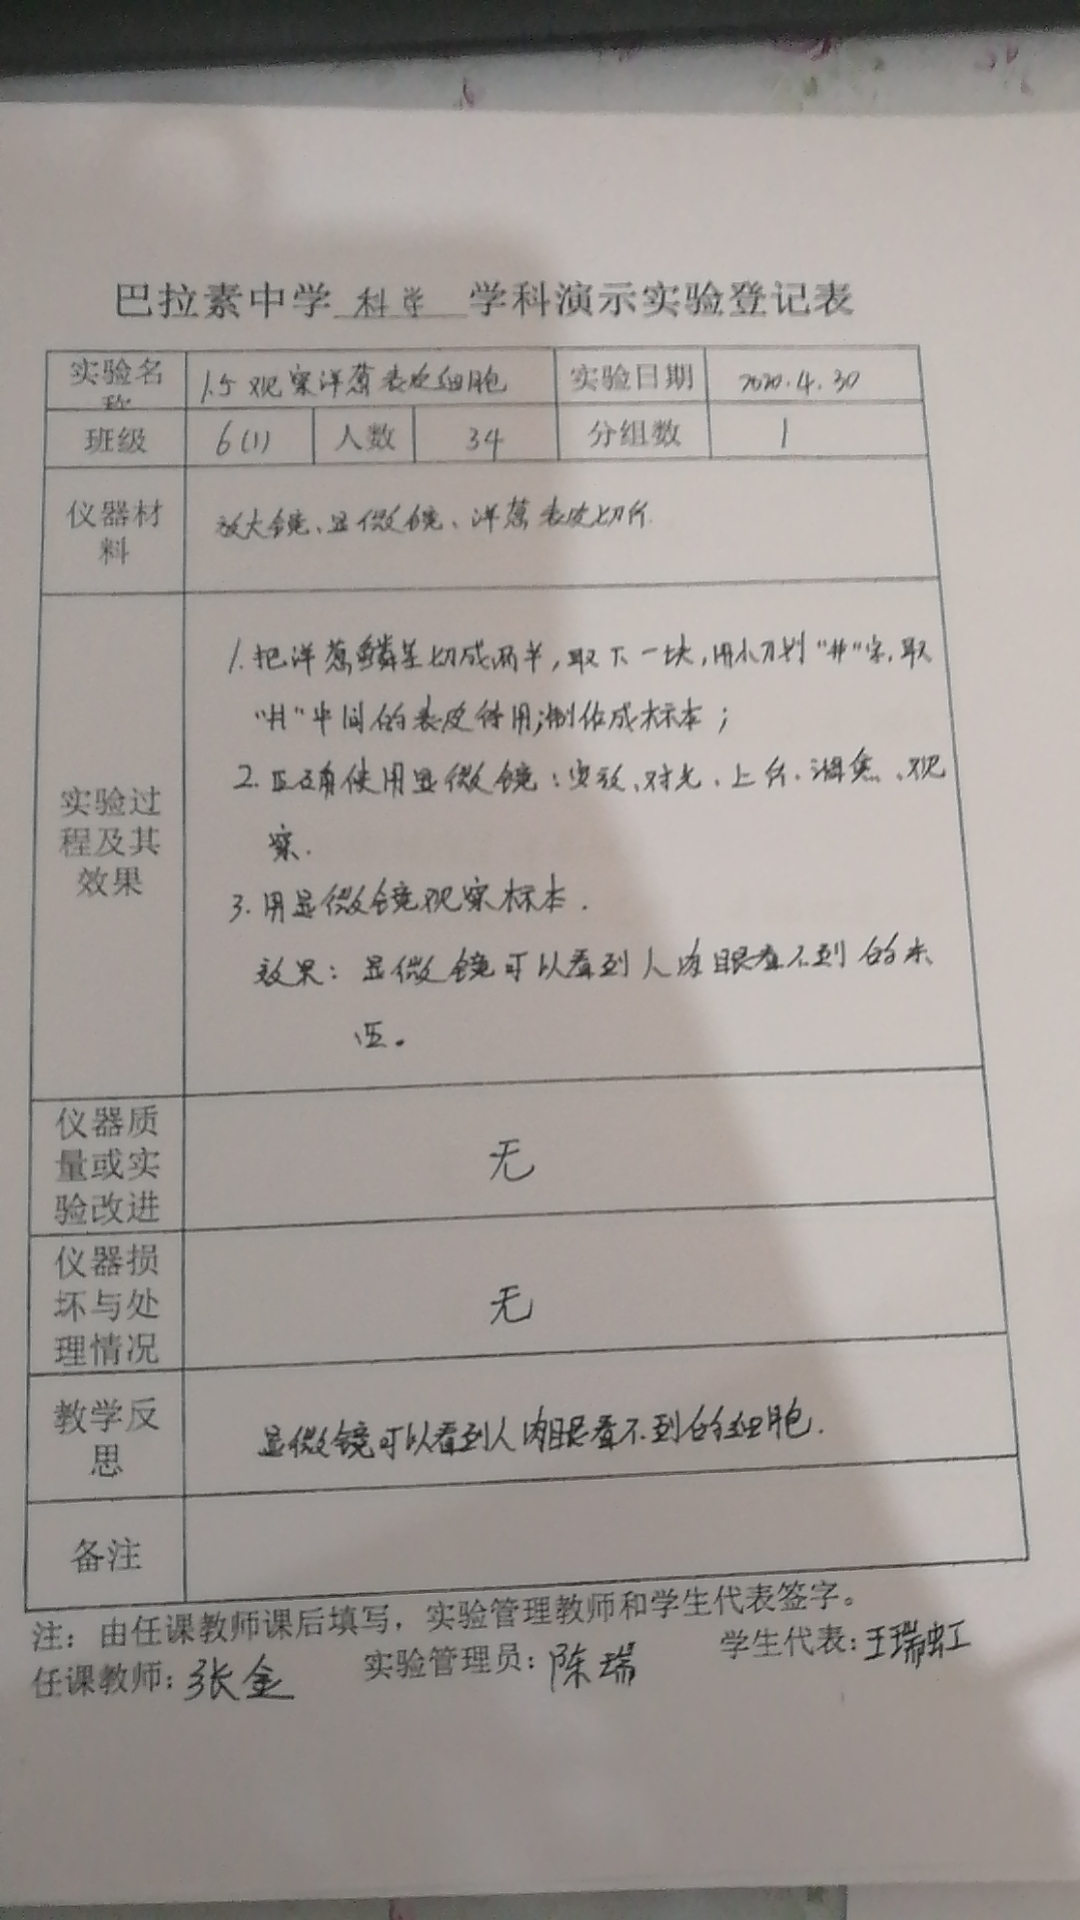 巴拉素中学 科学 学科演示实验登记表
实验名称 1.5 观察洋葱表皮细胞 实验日期 2020.4.30
班级 6(1) 人数 34 分组数 1
仪器材料 放大镜、显微镜、洋葱表皮切片.
实验过程及其效果
1. 把洋葱鳞茎切成两半,取下一块,用小刀划"井"字,取
"井"中间的表皮待用;制作成标本;
2. 正确使用显微镜:安放、对光、上片、调焦、观
察.
3. 用显微镜观察标本.
效果:显微镜可以看到人肉眼看不到的东
西。
仪器质量或实验改进 无
仪器损坏与处理情况 无
教学反思 显微镜可以看到人肉眼看不到的细胞.
备注
注:由任课教师课后填写,实验管理教师和学生代表签字。
任课教师:张金 实验管理员:陈瑞 学生代表:王瑞虹